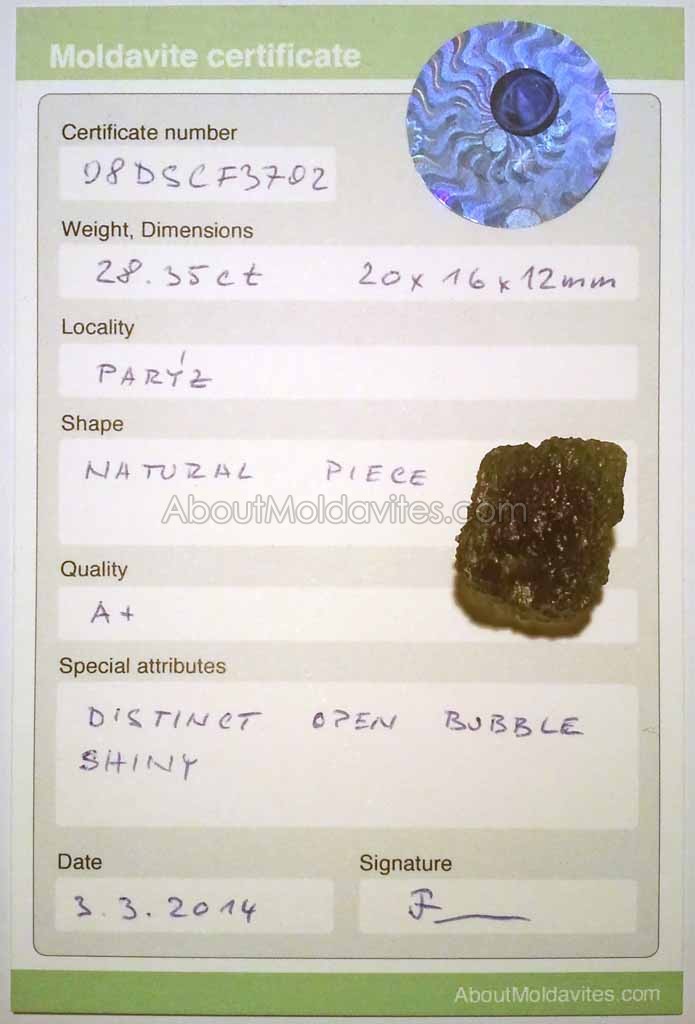 Moldavite certificate
Certificate number
08DSCF3702
Weight, Dimensions
28.35ct 20x16x12mm
Locality
PARÝZ
Shape
NATURAL PIECE
AboutMoldavites.com
Quality
A+
Special attributes
DISTINCT OPEN BUBBLE
SHINY
Date Signature
3.3.2014
AboutMoldavites.com